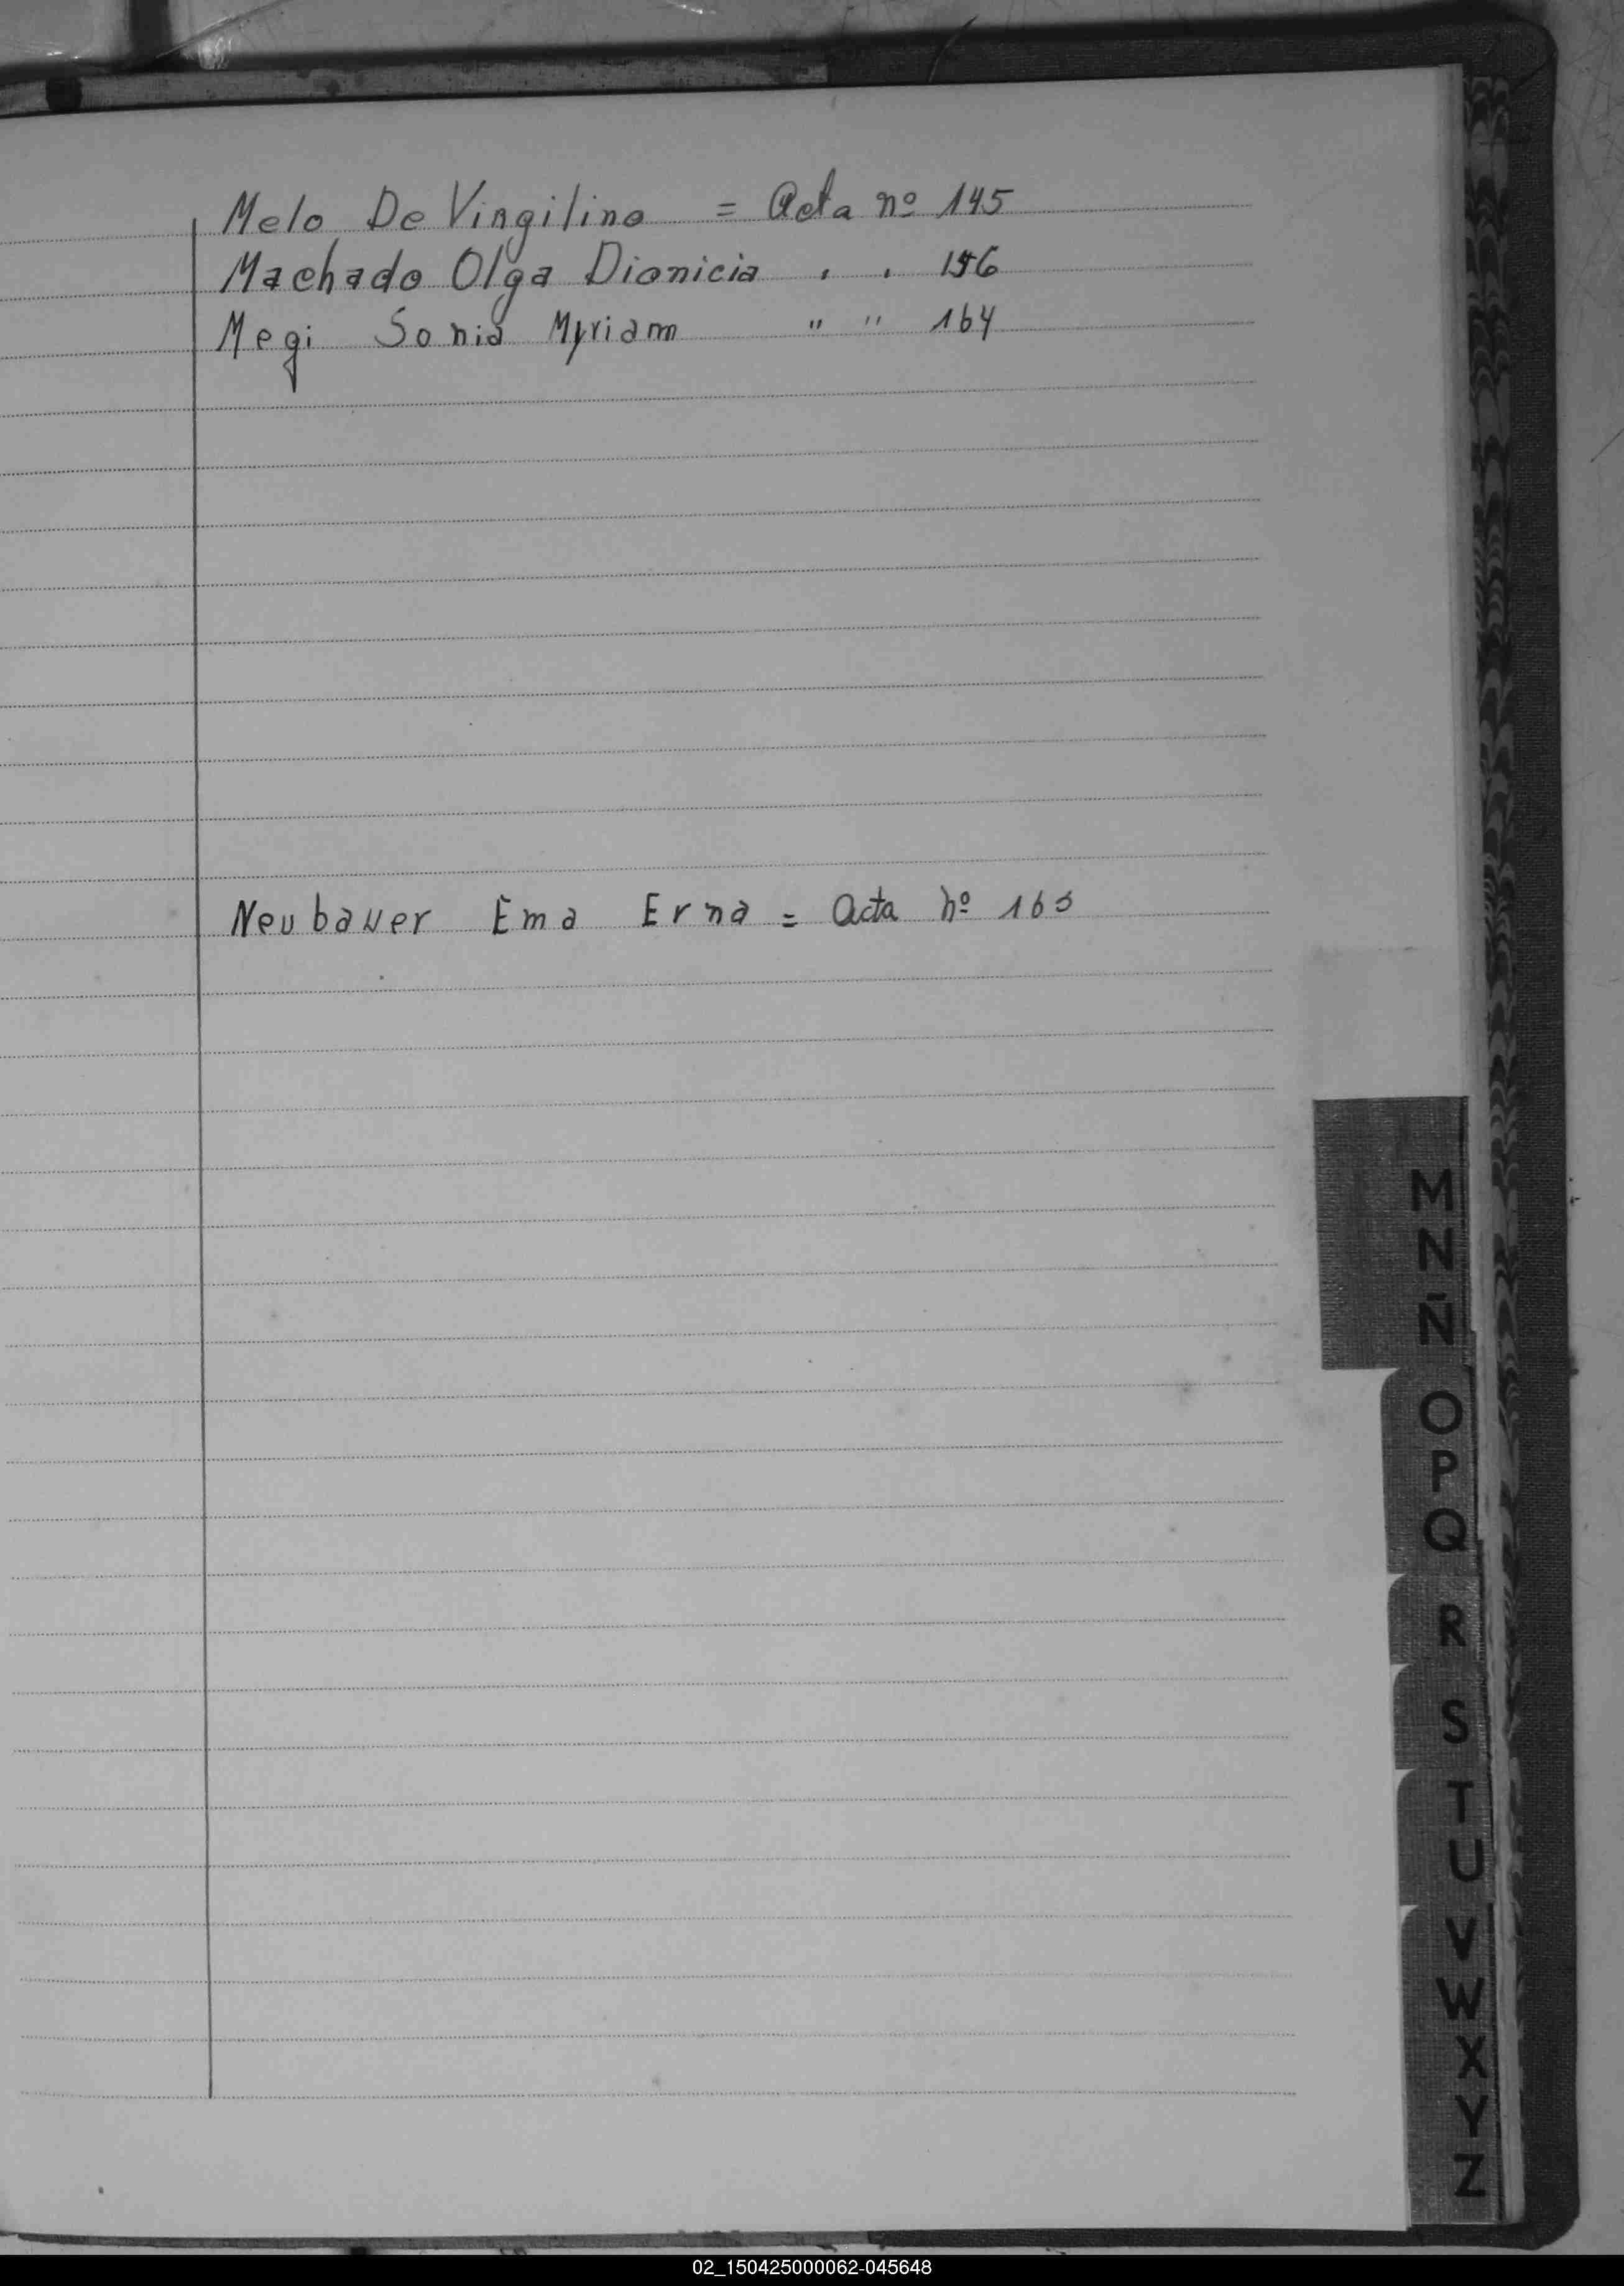 Melo De Vingilino = Acta nº 145
Machado Olga Dionicia " " 156
Megi Sonia Myriam " " 164
Neubauer Ema Erna = Acta nº 165
M
N
Ñ
O
P
Q
R
S
T
U
V
W
X
Y
Z
02_150425000062-045648